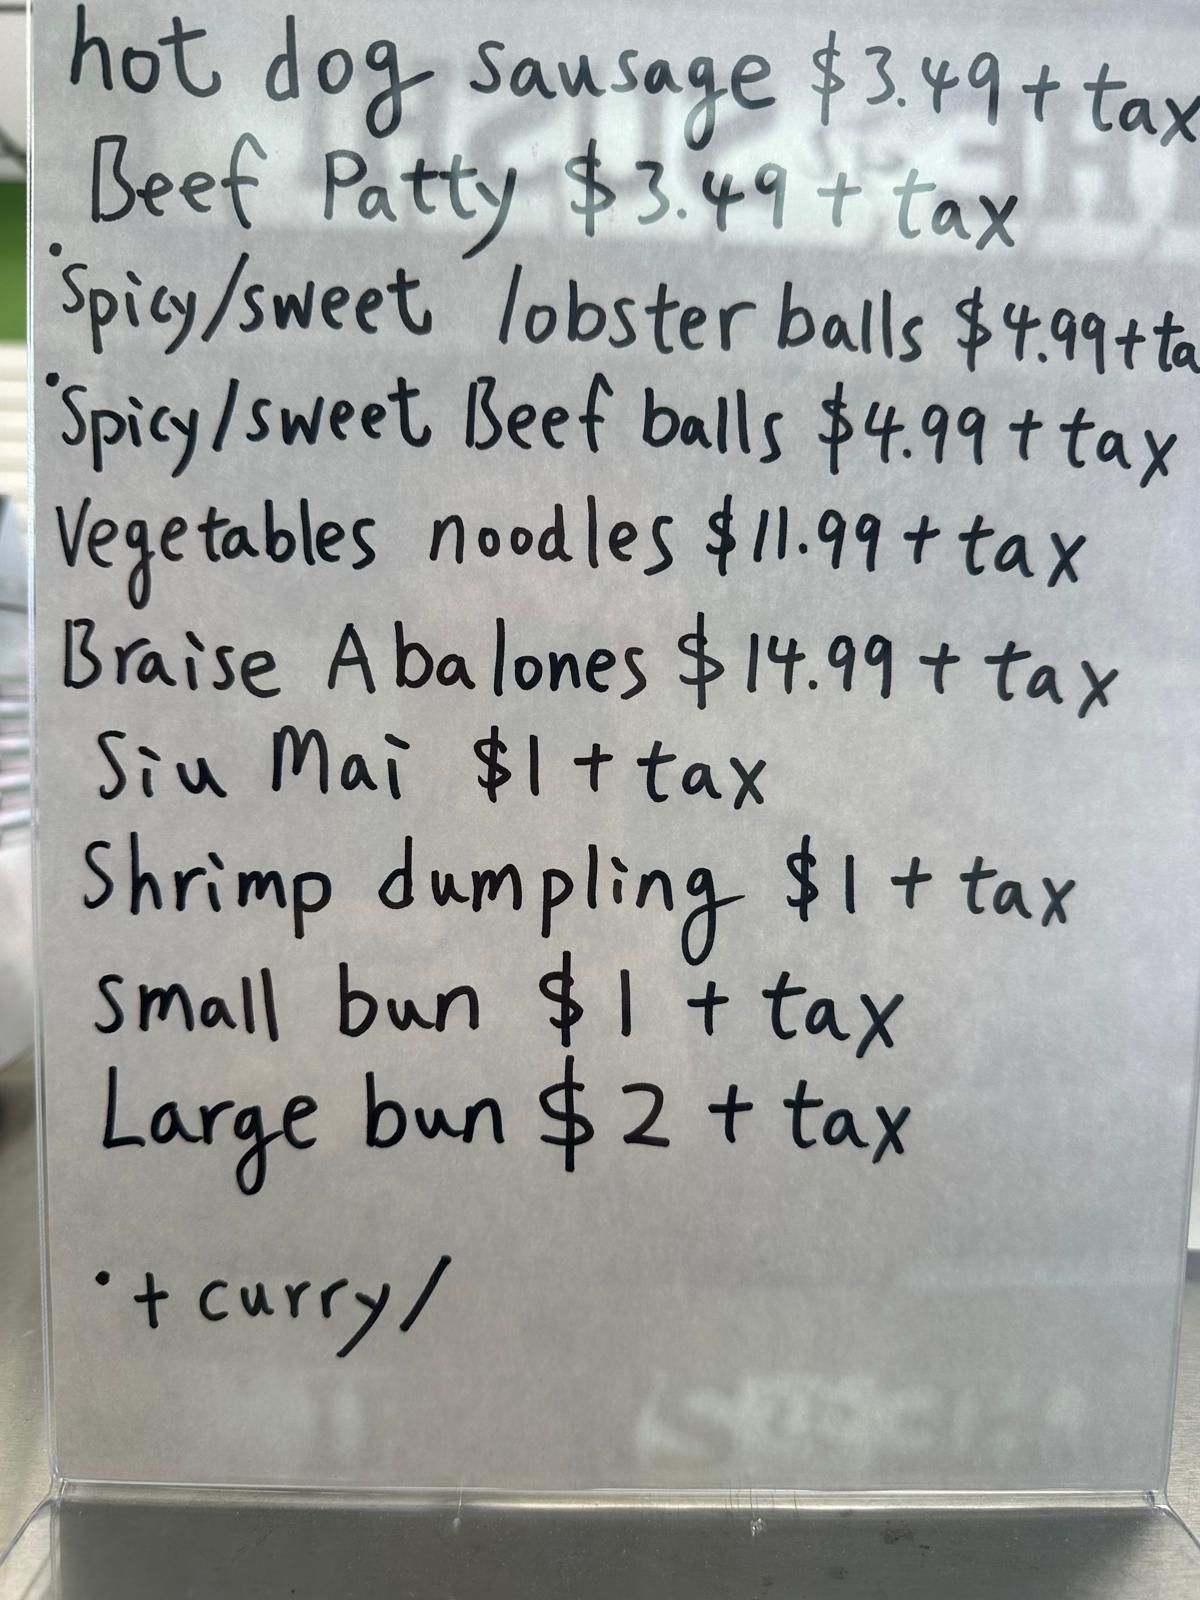 hot dog sausage $3.49 + tax
Beef Patty $3.49 + tax
•Spicy/sweet lobster balls $4.99 + ta
•Spicy/sweet Beef balls $4.99 + tax
Vegetables noodles $11.99 + tax
Braise Abalones $14.99 + tax
Siu Mai $1 + tax
Shrimp dumpling $1 + tax
small bun $1 + tax
Large bun $2 + tax
•+ curry/